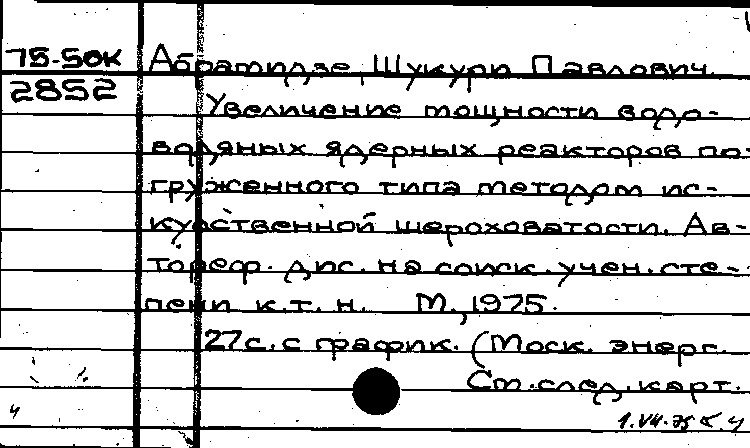 75-50к Абрамидзе, Шукури Павлович.
2852
Увеличение мощности водо-
водяных ядерных реакторов по-
груженного типа методом ис-
кусственной шероховатости. Ав-
тореф. дис. на соиск. учен. сте-
пени к.т.н. М., 1975.
27с. с график. (Моск. энерг.
См. след. карт.